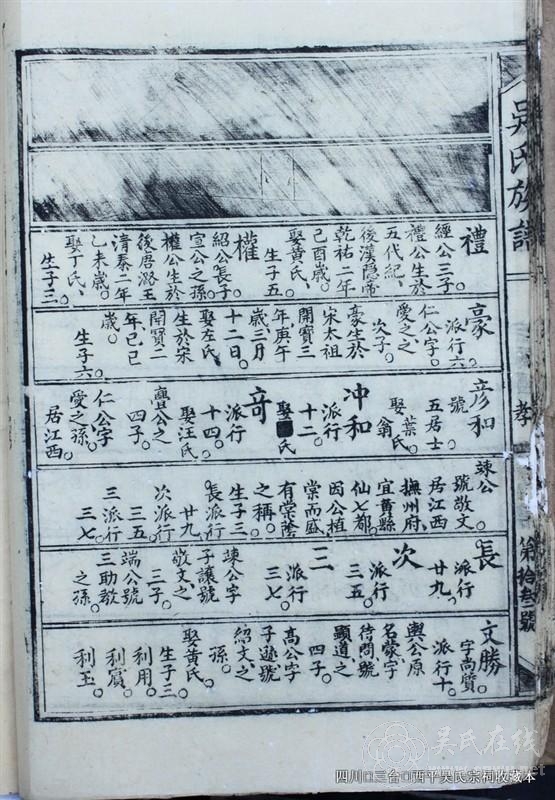 吳氏族譜
孝
第拾叁號
禮
經公三子。
禮公生於
五代紀、
後漢隐帝
乾祐二年
己酉歲。
娶黄氏、
生子五。
權
紹公長子
宣公之孫。
權公生於
後唐潞王
清泰二年
乙未歲。
娶丁氏、
生子三。
豪
派行六。
仁公字
愛之、之
次子。
豪生於
宋太祖
開寶三
年庚午
歲三月
十二日。
娶左氏
生於宋
開寶二
年己巳
歲。
生子六。
彦和
號
五居士。
娶葉氏。
翁
冲和
派行
十二。
娶氏
奇
派行
十四。
娶汪氏。
亶公之
四子。
仁公字
愛之孫。
居江西。
竦公。
號敬文。
居江西
撫州府
宜黄縣
仙七都。
因公植
棠而盛、
有棠蔭
之稱。
生子三。
長派行
廿九、
次派行
三五。
三派行
三七。
長
派行
廿九。
次
派行
三五。
三
派行
三七。
竦公字
子讓號
敬文、之
三子。
端公號
三助教
之孫。
文勝
字尚質。
派行十。
輿公原
名蒙、字
待問號
顕道、之
四子。
高公字
子遜號
紹文、之
孫。
娶黄氏。
生子三。
利用。
利賓。
利玉。
吴氏在线
四川□三台□西平吴氏宗祠收藏本